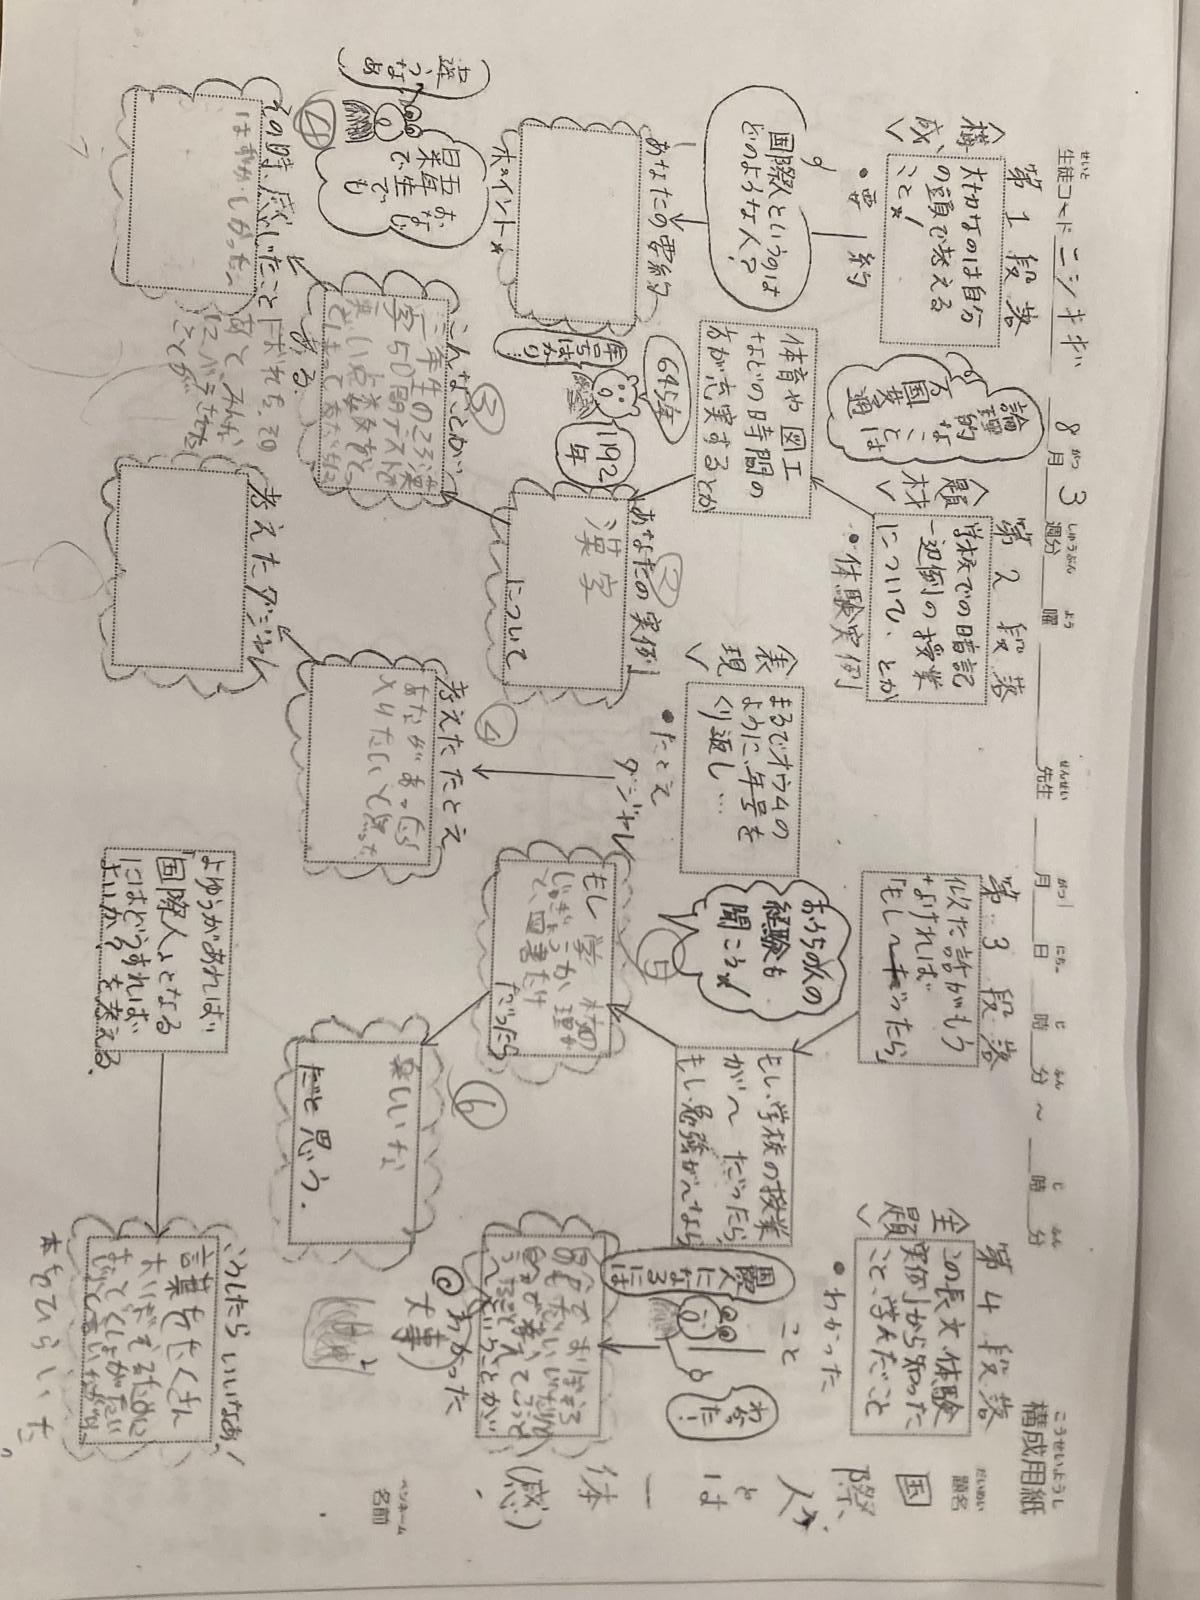 構成用紙
こうせいようし
せいと
生徒コード ニシキギ
8月3週分 曜
がつ しゅうぶん よう
先生 月 日 時 分 ～ 時 分
せんせい がつ にち じ ふん じ ふん
だいめい
題名
国際人とは一体(感)
ペンネーム
名前
第1段落
<構成>
大切なのは自分
の頭で考える
こと☆!
・要約
国際人というのは
どのような人?
あなたの要約
ポイント☆
論理的なことは
万国共通
第2段落
<題材>
学校での暗記
一辺倒の授業
について、とか
・体験実例
体育や図工
などの時間の
方が充実するとか
645年
1192年
年号ばかり!
②
あなたの実例
漢字
について
③
こんなとかい
二年生のころ漢
字50問テストで
悪い点数をと
ある。
④
その時、感じたこと
はずかしかった。
おなじ
日本語
でも
違うなあ
<表現>
まるでオウムの
ように年号を
くり返し…
・たとえ
ダジャレ
④
考えたたとえ
あながあったら
入りたいと思った
考えたダジャレ
第3段落
似た話がもう
なければ
「もし～だったら」
おうちの人の
経験も
聞こう☆!
もし、学校の授業
が～だったら、
もし勉強が～なら
5
もし学校の
じゅぎょうが理か
と、図書だけ
だったら
⑥
楽しいな
だと思う.
第4段落
<主題>
この長文、体験
実例から知った
こと、学んだこと
・わかった
こと
国際人になるには
わかった!
◎わかった
大事
よゆうがあれば
「国際人」となる
にはどうすれば
よいかを考える.
こうしたらいいなあ!
言葉をたくさん
本をひらいた。